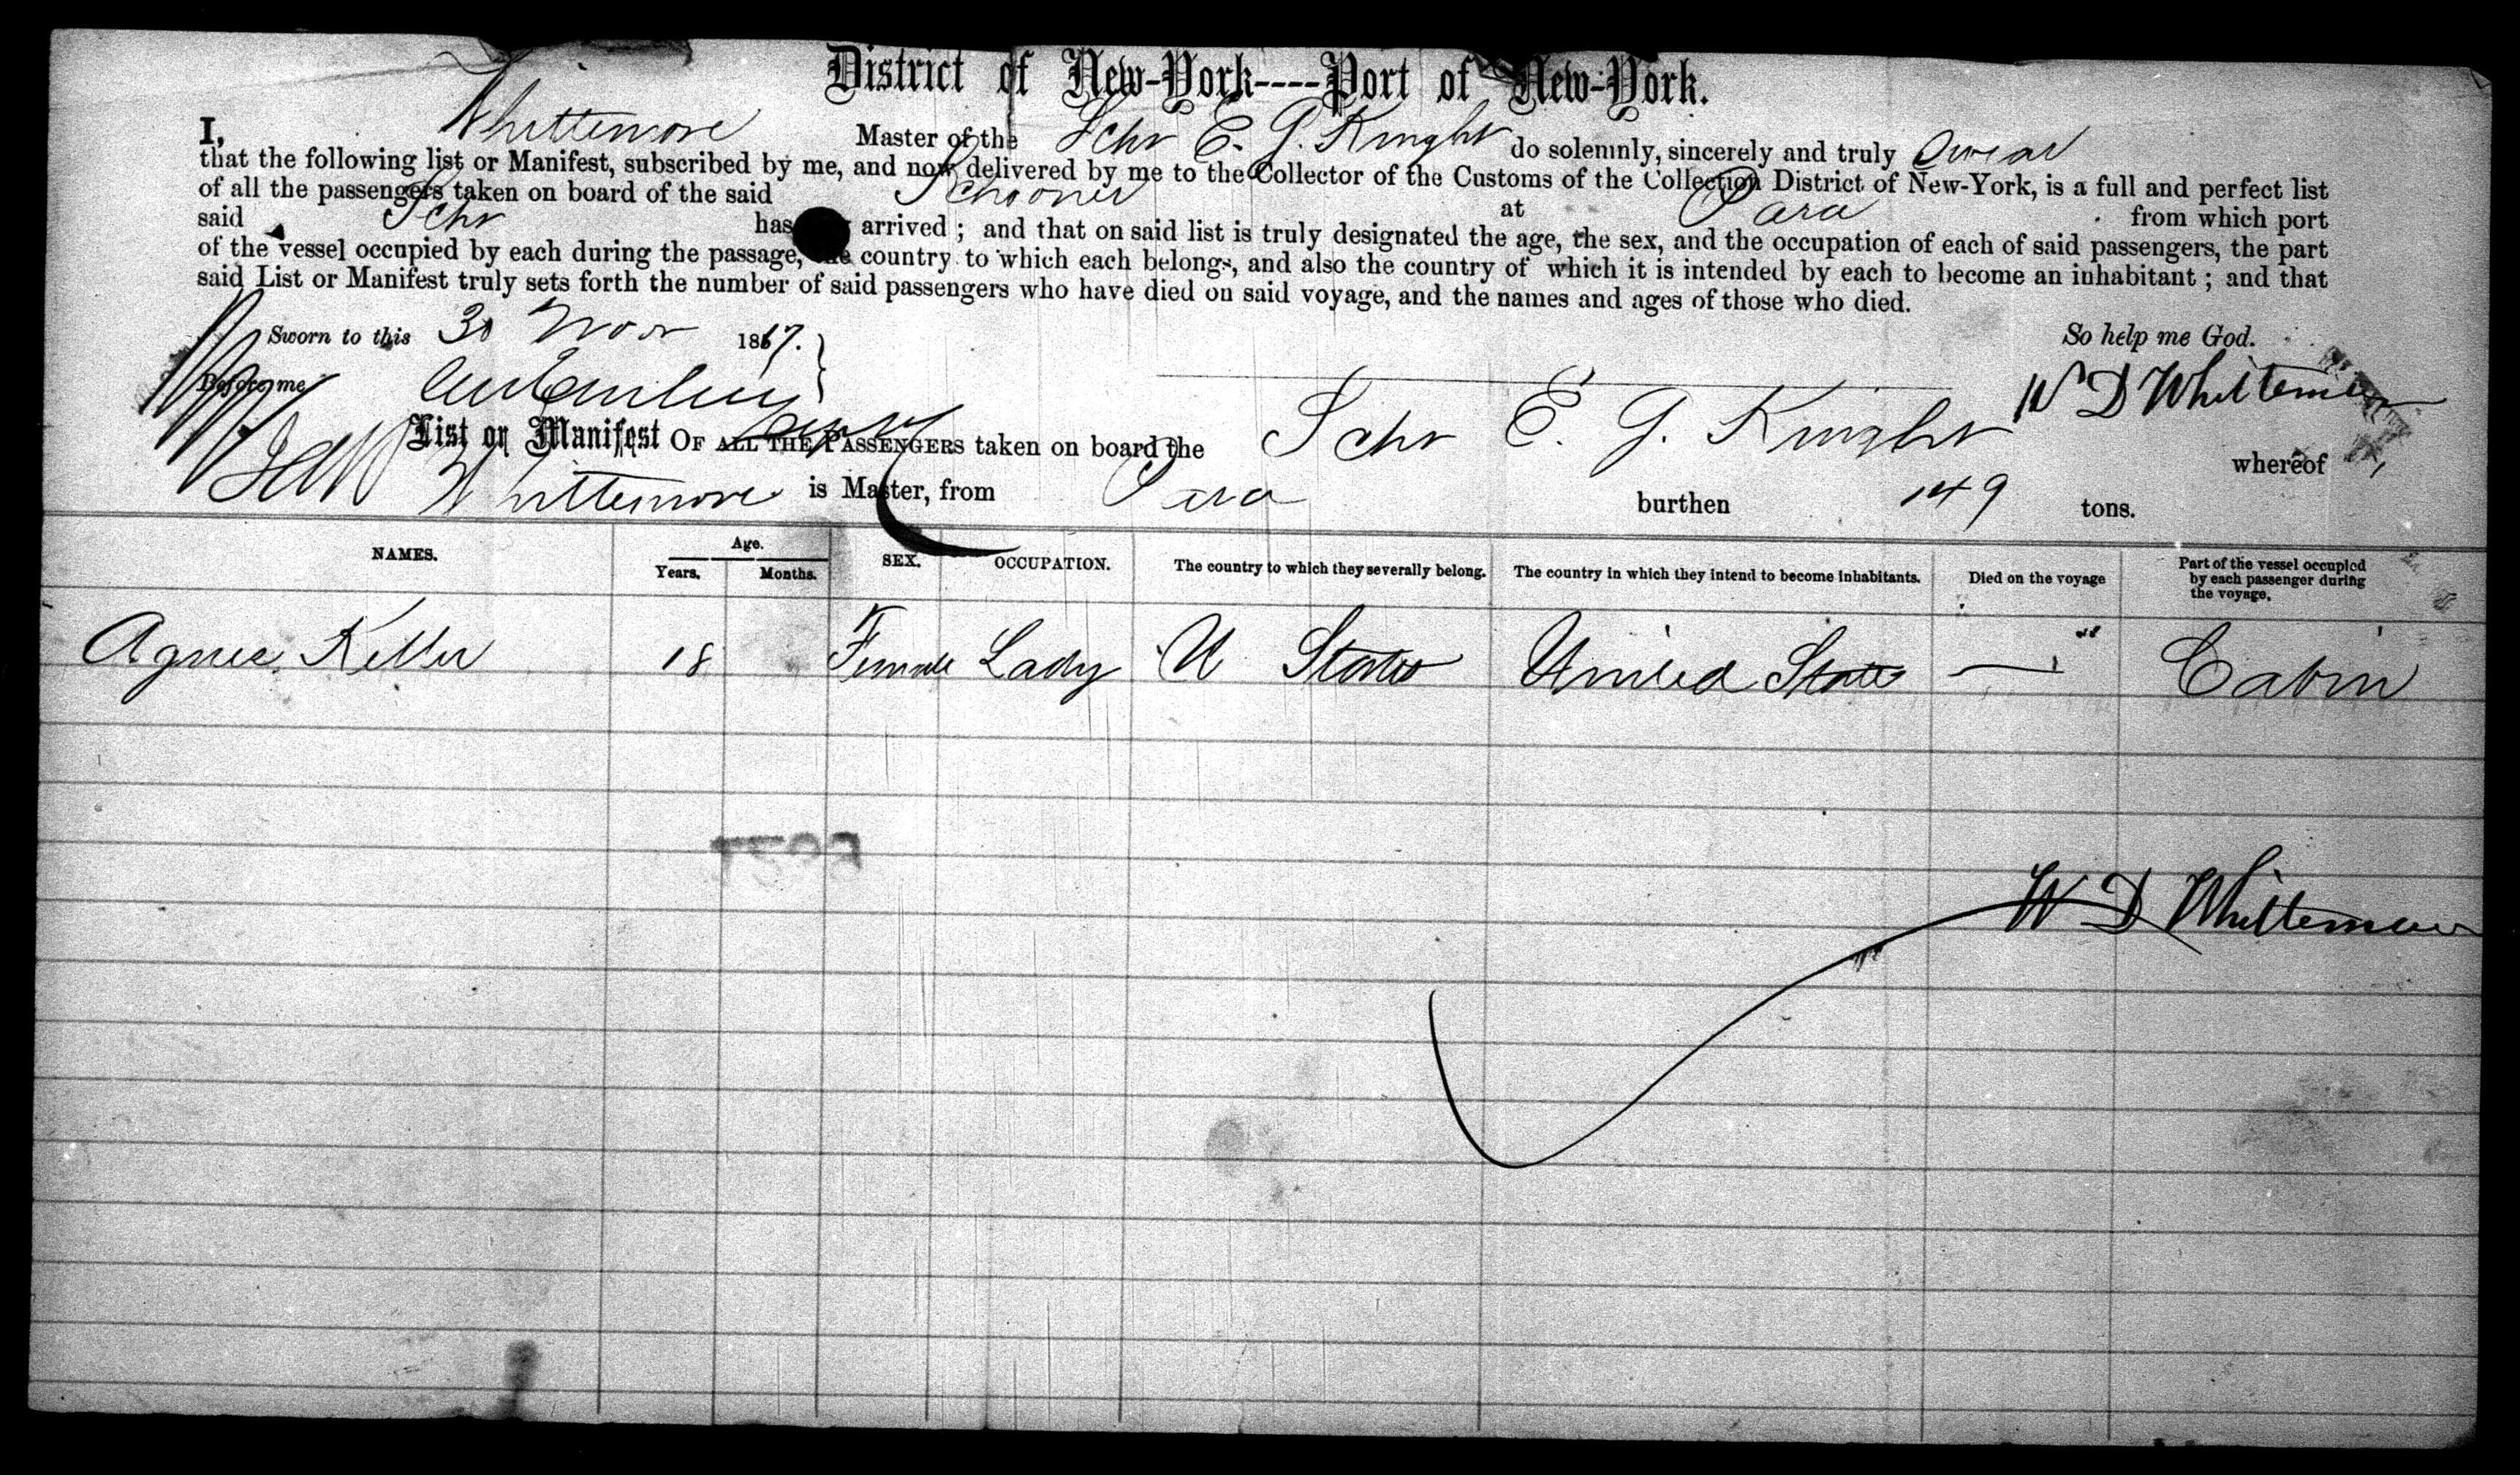 District of New-York----Port of New-York.
I, Whittemore Master of the Schr E. G. Knight do solemnly, sincerely and truly Swear
that the following list or Manifest, subscribed by me, and now delivered by me to the Collector of the Customs of the Collection District of New-York, is a full and perfect list
of all the passengers taken on board of the said Schooner at Para from which port
said Schr has arrived ; and that on said list is truly designated the age, the sex, and the occupation of each of said passengers, the part
of the vessel occupied by each during the passage, the country to which each belongs, and also the country of which it is intended by each to become an inhabitant ; and that
said List or Manifest truly sets forth the number of said passengers who have died on said voyage, and the names and ages of those who died.
Sworn to this 30 Novr 1867. So help me God.
Before me W D Whittemore
List or Manifest OF ALL THE PASSENGERS taken on board the Schr E. G. Knight whereof
Whittemore is Master, from Para burthen 149 tons.
NAMES. Age. Years. Months. SEX. OCCUPATION. The country to which they severally belong. The country in which they intend to become inhabitants. Died on the voyage Part of the vessel occupied by each passenger during the voyage.
Agnes Keller 18 Female Lady U States United States — Cabin
W D Whittemore